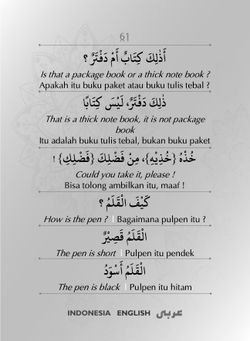 61
أَذٰلِكَ كِتَابٌ أَمْ دَفْتَرٌ ؟
Is that a package book or a thick note book ?
Apakah itu buku paket atau buku tulis tebal ?
ذٰلِكَ دَفْتَرٌ، لَيْسَ كِتَابًا
That is a thick note book, it is not package
book
Itu adalah buku tulis tebal, bukan buku paket
خُذْهُ {خُذِيْهِ}، مِنْ فَضْلِكَ {فَضْلِكِ} !
Could you take it, please !
Bisa tolong ambilkan itu, maaf !
كَيْفَ الْقَلَمُ ؟
How is the pen ? | Bagaimana pulpen itu ?
الْقَلَمُ قَصِيْرٌ
The pen is short | Pulpen itu pendek
الْقَلَمُ أَسْوَدُ
The pen is black | Pulpen itu hitam
INDONESIA ENGLISH عربي